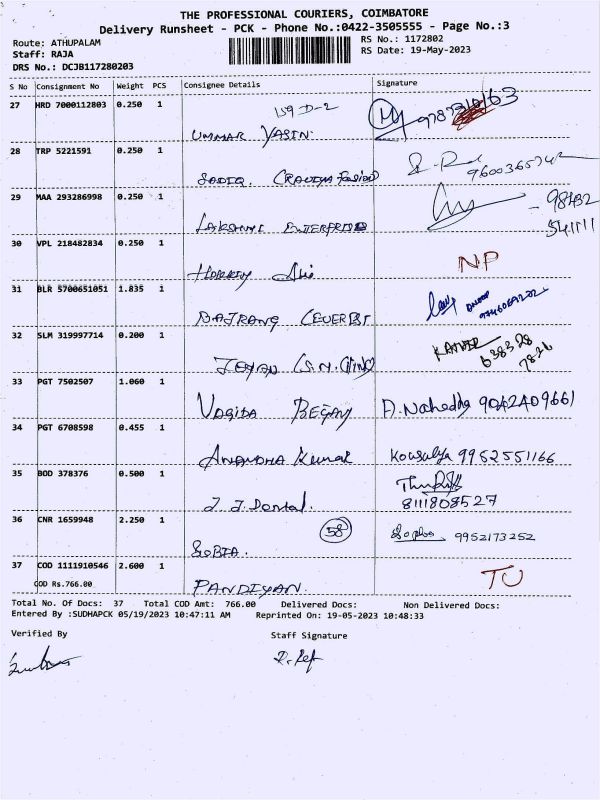 THE PROFESSIONAL COURIERS, COIMBATORE
Delivery Runsheet - PCK - Phone No.:0422-3505555 - Page No.:3
Route: ATHUPALAM
RS No.: 1172802
Staff: RAJA
RS Date: 19-May-2023
DRS No.: DCJB117280203
S No Consignment No Weight PCS Consignee Details Signature
27 HRD 7000112803 0.250 1
159 D-2
UMMAR YASIN
28 TRP 5221591 0.250 1
SADIQ
9600365742
29 MAA 293286998 0.250 1
LAKSHMI ENTERPRISE
98432
541111
30 VPL 218482834 0.250 1
NP
31 BLR 5700651051 1.835 1
BAJRANG
32 SLM 319997714 0.200 1
638328
7826
33 PGT 7502507 1.060 1
BEGAM
9042409661
34 PGT 6708598 0.455 1
ANANDHA Kumar
Kousalya 9952551166
35 BOD 378376 0.500 1
J.J. Dental.
8111808527
36 CNR 1659948 2.250 1
58
SOBIA.
9952173252
37 COD 1111910546 2.600 1
COD Rs.766.00
PANDIYAN.
TU
Total No. Of Docs: 37 Total COD Amt: 766.00 Delivered Docs: Non Delivered Docs:
Entered By :SUDHAPCK 05/19/2023 10:47:11 AM Reprinted On: 19-05-2023 10:48:33
Verified By Staff Signature